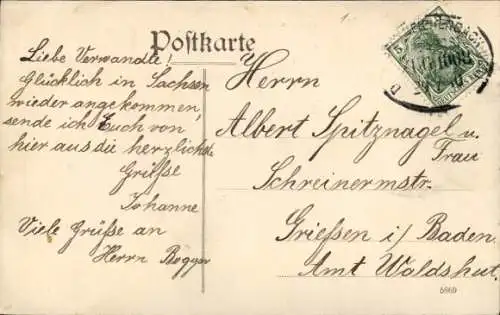 Postkarte
Liebe Verwandte!
Glücklich in Sachsen
wieder angekommen,
sende ich Euch von
hier aus die herzlichste
Grüsse
Johanne
Viele Grüße an
Herrn Boggar
Herrn
Albert Spitznagel u.
Frau
Schreinermstr.
Griessen i/ Baden
Amt Waldshut.
5869